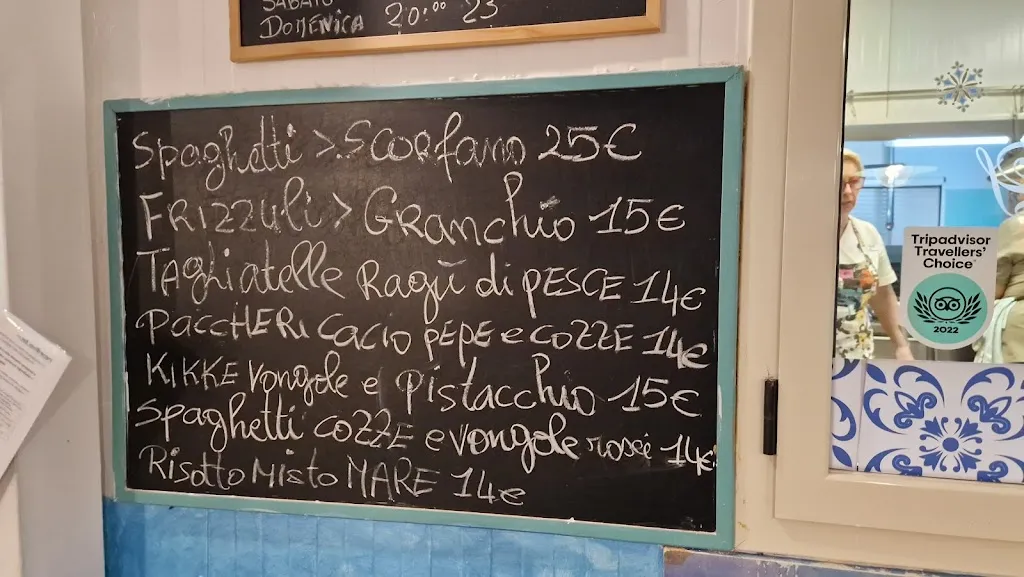 SABATO
DOMENICA 20:00 23
Spaghetti > Scorfano 25€
FRIZZULi > GRanchio 15€
TAgliatelle Ragù di PESCE 14€
PACCHERI CACIO PEPE e COZZE 14€
KIKKE Vongole e Pistacchio 15€
Spaghetti COZZE e vongole rosse 14€
Risotto Misto MARE 14€
Tripadvisor
Travellers'
Choice
2022